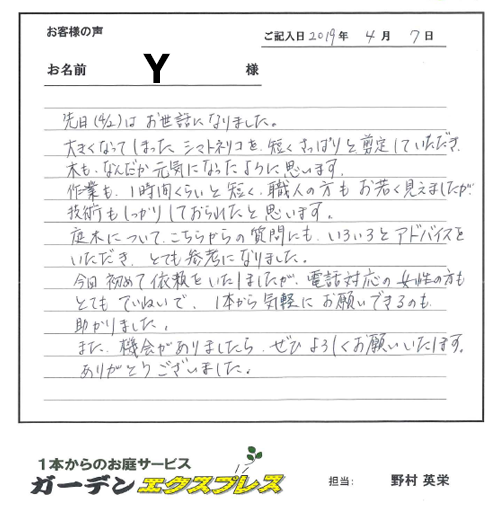 お客様の声
ご記入日 2019年 4月 7日
お名前 Y 様
先日(4/2)は お世話になりました。
大きくなってしまった シマトネリコを、短く さっぱりと 剪定していただき、
木も、なんだか 元気になったように 思います。
作業も、1時間くらいと 短く、職人の方も お若く見えましたが、
技術も しっかりしておられたと 思います。
庭木について、こちらからの 質問にも、いろいろと アドバイスを
いただき、とても 参考に なりました。
今回 初めて 依頼を いたしましたが、電話対応の 女性の方も
とても ていねいで、1本から 気軽に お願いできるのも、
助かりました。
また、機会が ありましたら、ぜひ よろしく お願いいたします。
ありがとうございました。
1本からのお庭サービス
ガーデンエクスプレス
担当: 野村 英栄